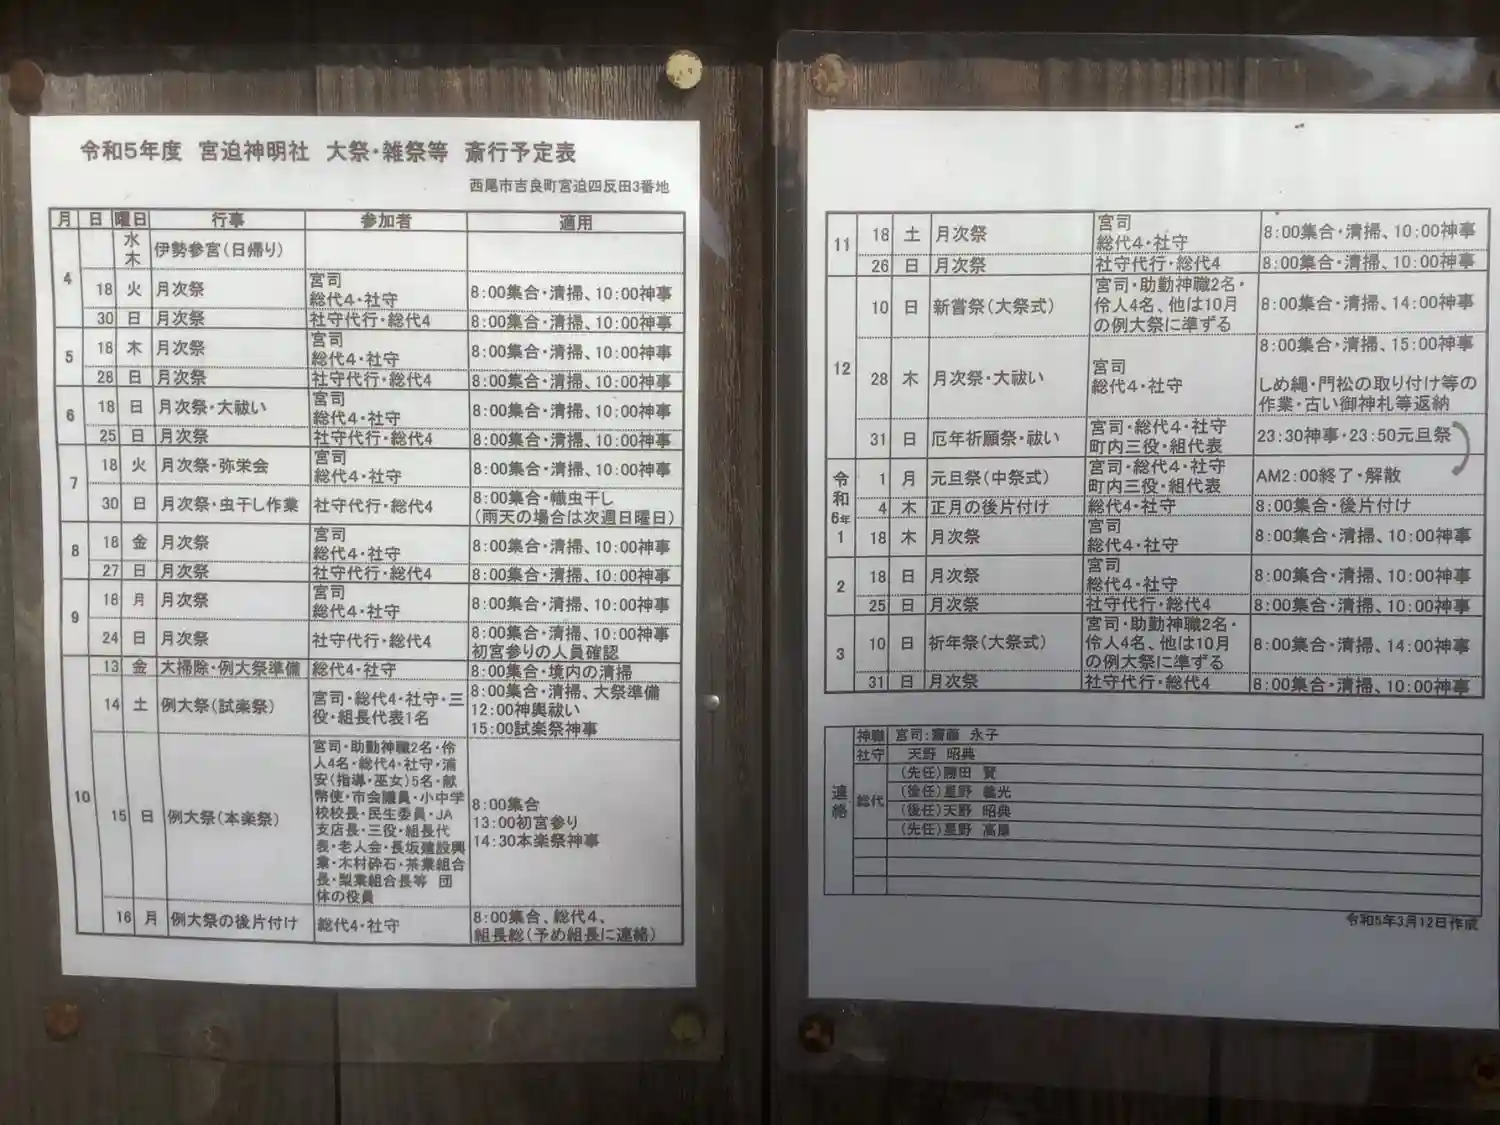 令和5年度 宮迫神明社 大祭・雑祭等 斎行予定表
西尾市吉良町宮迫四反田3番地
月 日 曜日 行事 参加者 適用
4 水木 伊勢参宮(日帰り)
18 火 月次祭 宮司 総代4・社守 8:00集合・清掃、10:00神事
30 日 月次祭 社守代行・総代4 8:00集合・清掃、10:00神事
5 18 木 月次祭 宮司 総代4・社守 8:00集合・清掃、10:00神事
28 日 月次祭 社守代行・総代4 8:00集合・清掃、10:00神事
6 18 日 月次祭・大祓い 宮司 総代4・社守 8:00集合・清掃、10:00神事
25 日 月次祭 社守代行・総代4 8:00集合・清掃、10:00神事
7 18 火 月次祭・弥栄会 宮司 総代4・社守 8:00集合・清掃、10:00神事
30 日 月次祭・虫干し作業 社守代行・総代4 8:00集合・幟虫干し
(雨天の場合は次週日曜日)
8 18 金 月次祭 宮司 総代4・社守 8:00集合・清掃、10:00神事
27 日 月次祭 社守代行・総代4 8:00集合・清掃、10:00神事
9 18 月 月次祭 宮司 総代4・社守 8:00集合・清掃、10:00神事
24 日 月次祭 社守代行・総代4 8:00集合・清掃、10:00神事
初宮参りの人員確認
10 13 金 大掃除・例大祭準備 総代4・社守 8:00集合・境内の清掃
14 土 例大祭(試楽祭) 宮司・総代4・社守・三
役・組長代表1名
8:00集合・清掃、大祭準備
12:00神輿祓い
15:00試楽祭神事
15 日 例大祭(本楽祭)
宮司・助勤神職2名・伶
人4名・総代4・社守・浦
安(指導・巫女)5名・献
幣使・市会議員・小中学
校校長・民生委員・JA
支店長・三役・組長代
表・老人会・長坂建設興
業・木村砕石・茶業組合
長・梨業組合長等 団
体の役員
8:00集合
13:00初宮参り
14:30本楽祭神事
16 月 例大祭の後片付け 総代4・社守 8:00集合、総代4、
組長総(予め組長に連絡)
11 18 土 月次祭 宮司 総代4・社守 8:00集合・清掃、10:00神事
26 日 月次祭 社守代行・総代4 8:00集合・清掃、10:00神事
12 10 日 新嘗祭(大祭式) 宮司・助勤神職2名・
伶人4名、他は10月
の例大祭に準ずる
8:00集合・清掃、14:00神事
28 木 月次祭・大祓い 宮司 総代4・社守
8:00集合・清掃、15:00神事
しめ縄・門松の取り付け等の
作業・古い御神札等返納
31 日 厄年祈願祭・祓い 宮司・総代4・社守
町内三役・組代表
23:30神事・23:50元旦祭
令和6年1 1 月 元旦祭(中祭式) 宮司・総代4・社守
町内三役・組代表
AM2:00終了・解散
4 木 正月の後片付け 総代4・社守 8:00集合・後片付け
18 木 月次祭 宮司 総代4・社守 8:00集合・清掃、10:00神事
2 18 日 月次祭 宮司 総代4・社守 8:00集合・清掃、10:00神事
25 日 月次祭 社守代行・総代4 8:00集合・清掃、10:00神事
3 10 日 祈年祭(大祭式) 宮司・助勤神職2名・
伶人4名、他は10月
の例大祭に準ずる
8:00集合・清掃、14:00神事
31 日 月次祭 社守代行・総代4 8:00集合・清掃、10:00神事
連絡 神職 宮司:齋藤 永子
社守 天野 昭典
総代 (先任)勝田 賢
(後任)星野 義光
(後任)天野 昭典
(先任)星野
令和5年3月12日作成